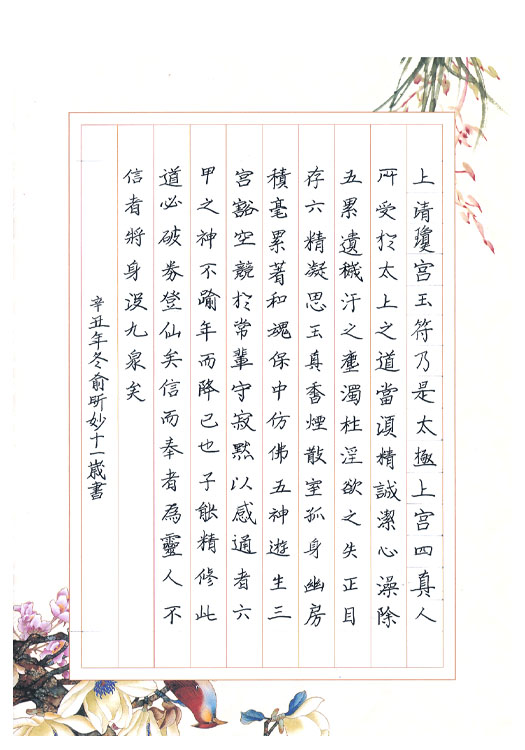 上清瓊宮玉符乃是太極上宮四真人
所受於太上之道當須精誠潔心澡除
五累遺穢汙之塵濁杜淫欲之失正目
存六精凝思玉真香煙散室孤身幽房
積毫累著和魂保中仿佛五神遊生三
宮豁空競於常輩守寂默以感通者六
甲之神不踰年而降己也子能精修此
道必破券登仙矣信而奉者為靈人不
信者將身没九泉矣
辛丑年冬俞昕妙十一歲書